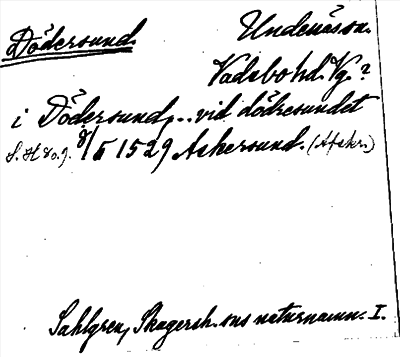 Dödersund. Undenäs sn.
Vadsbo hd. Vg.?
i Dödersund,.. vid dödresundet
8/5 1529 Askersund. (Afskr.)
Sahlgren, Skagersh. sns naturnamn. I.